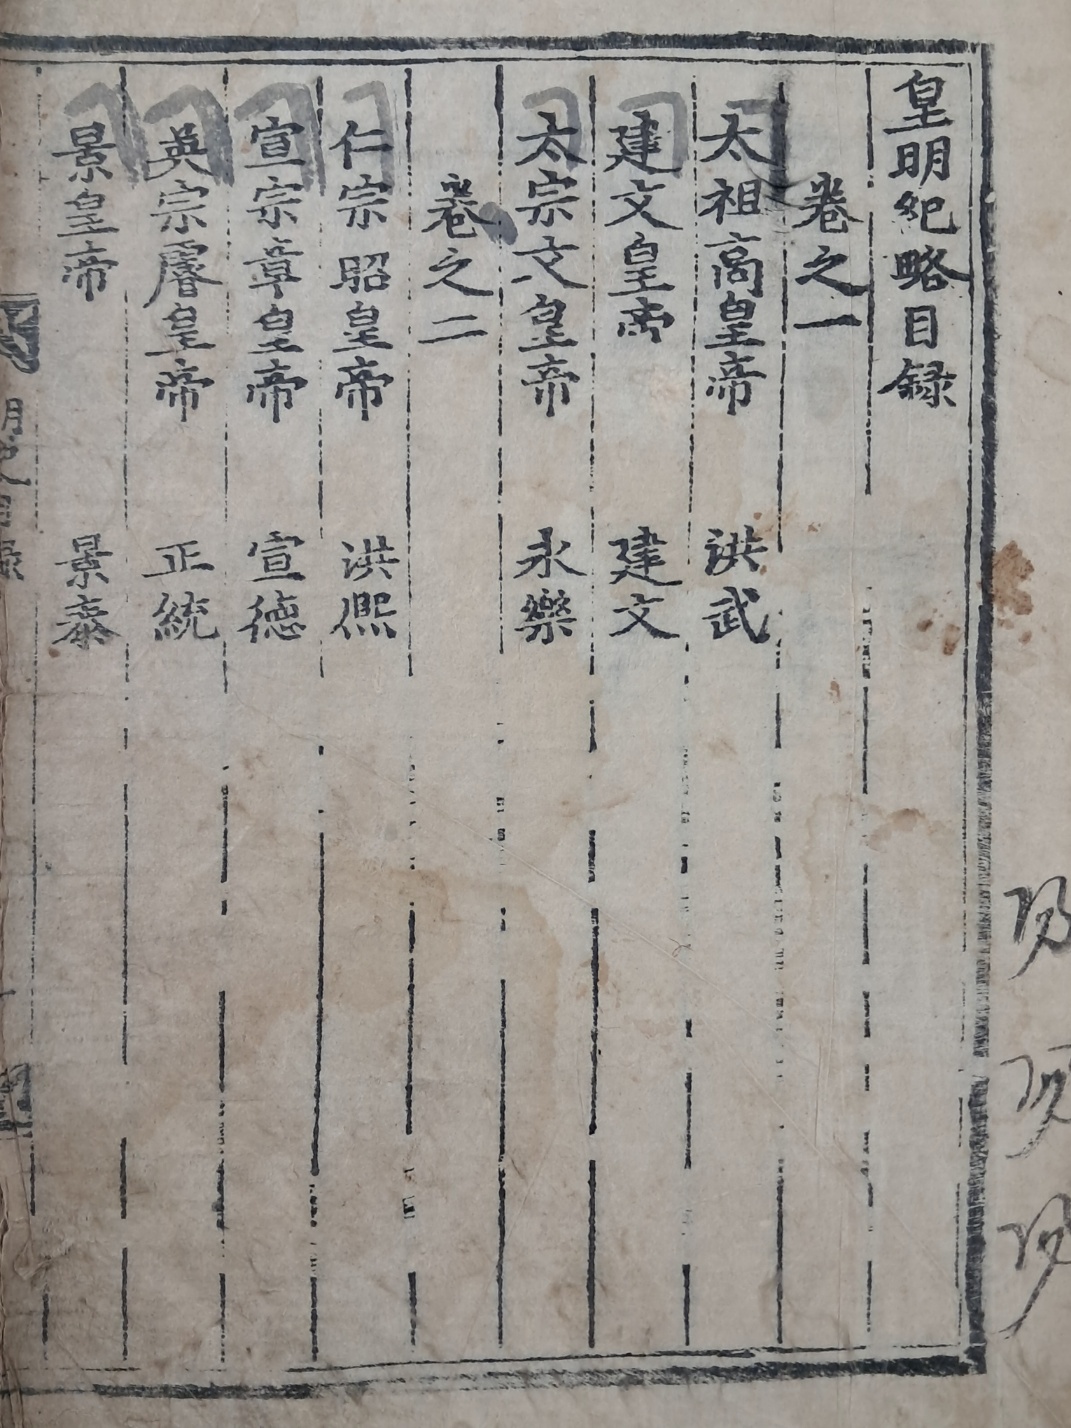 皇明紀略目録
卷之一
太祖高皇帝 洪武
建文皇帝 建文
太宗文皇帝 永樂
卷之二
仁宗昭皇帝 洪熙
宣宗章皇帝 宣德
英宗睿皇帝 正統
景皇帝 景泰